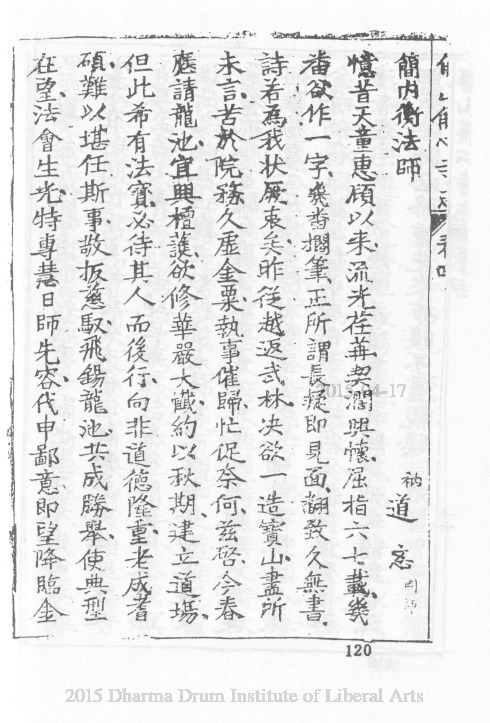 簡內衡法師
衲道忞
憶昔天童惠顧以來流光荏苒契濶興懷屈指六七載幾
番欲作一字幾番擱筆正所謂長疑即見面翻致久無書
詩若為我狀厥衷矣昨從越返武林决欲一造寶山盡所
未言苦於院務久虛金粟執事催歸忙促奈何茲啓今春
應請龍池宜興檀護欲修華嚴大懺約以秋期建立道場
但此希有法寶必待其人而後行向非道德隆重老成耆
碩難以堪任斯事敬扳慈馭飛錫龍池共成勝舉使典型
在望法會生光特專慧日師先容代申鄙意即望降臨金
120
2015-04-17
2015 Dharma Drum Institute of Liberal Arts